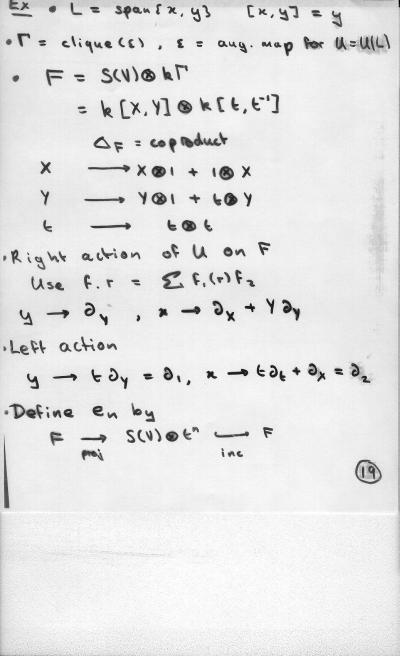 Ex • L = span{x, y} [x, y] = y
• Γ = clique(ε), ε = aug. map for U = U(L)
• F = S(V) ⊗ kΓ
= k[X, Y] ⊗ k[t, t⁻¹]
Δ_F = coproduct
X ⟶ X⊗1 + 1⊗X
Y ⟶ Y⊗1 + t⊗Y
t ⟶ t⊗t
• Right action of U on F
Use f.r = Σ f₁(r) f₂
y → ∂_y , x → ∂_x + Y∂_y
• Left action
y → t∂_y = ∂₁, x → t∂_t + ∂_x = ∂₂
• Define en by
F ⟶ S(V)⊗tⁿ ⟶ F
proj inc
19